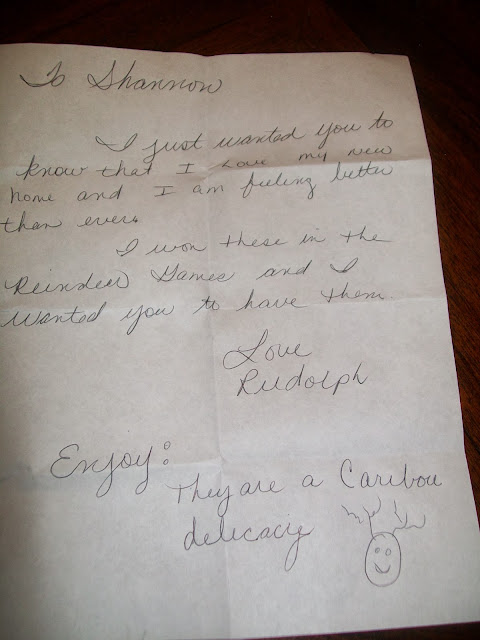 To Shannon
I just wanted you to
know that I Love my new
home and I am feeling better
than ever.
I won these in the
Reindeer Games and I
wanted you to have them.
Love
Rudolph
Enjoy:
They are a Caribou
delicacy